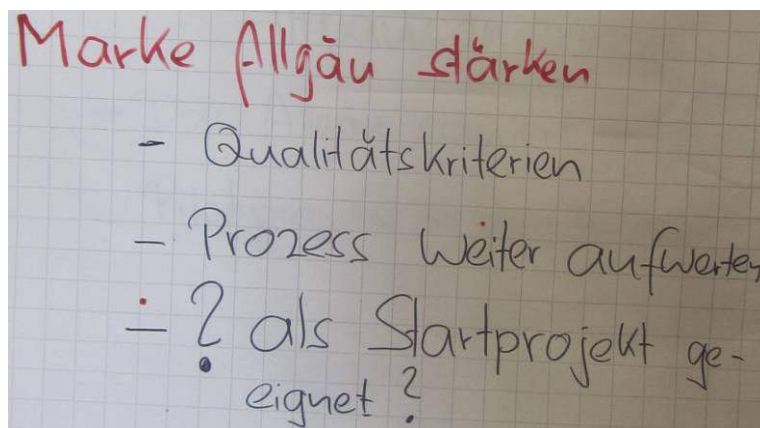 Marke Allgäu stärken
- Qualitätskriterien
- Prozess weiter aufwerten
- ? als Startprojekt ge-
eignet?